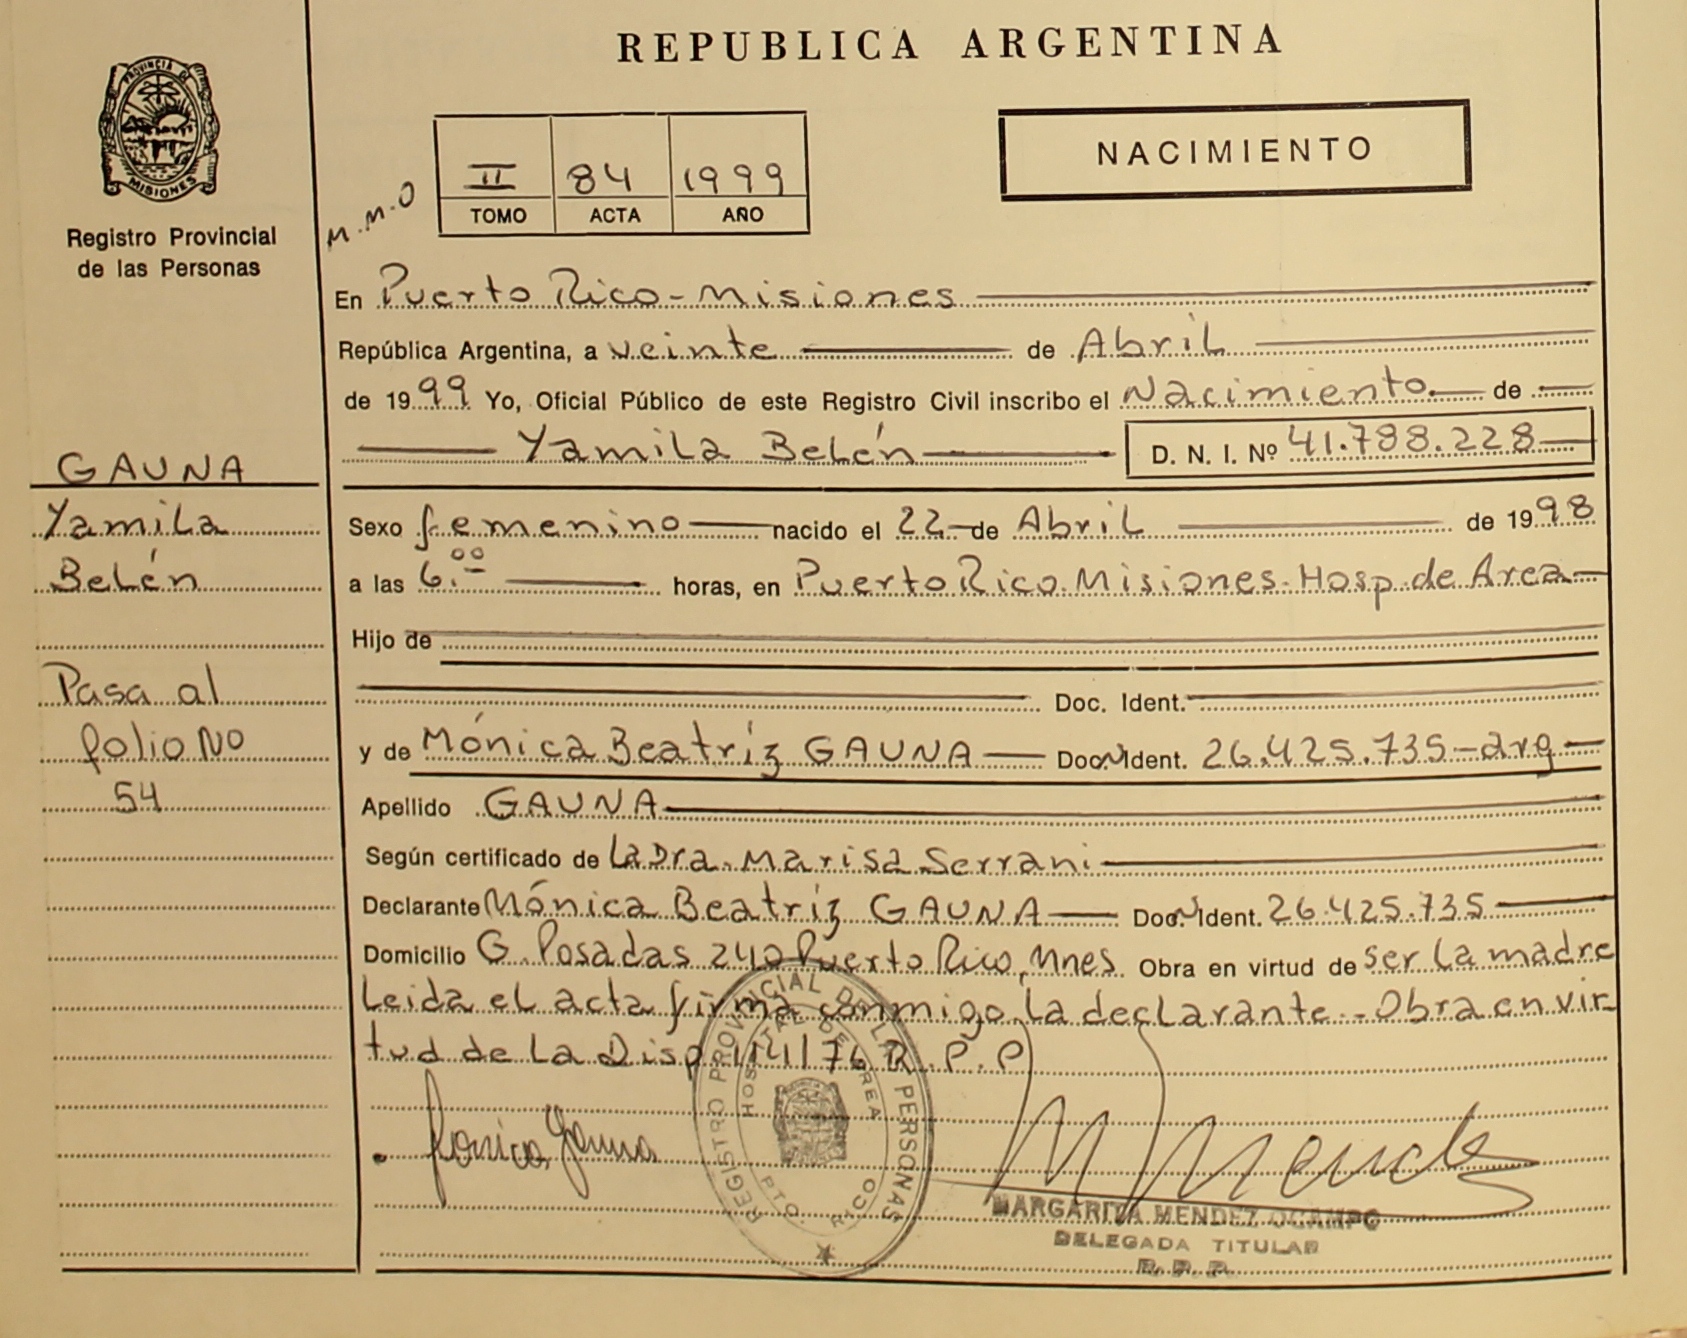 REPUBLICA ARGENTINA
PROVINCIA DE
MISIONES
Registro Provincial
de las Personas
M.M.O
II 84 1999
TOMO ACTA AÑO
NACIMIENTO
En Puerto Rico - Misiones
República Argentina, a veinte de Abril
de 1999 Yo, Oficial Público de este Registro Civil inscribo el Nacimiento de
Yamila Belén D. N. I. Nº 41.788.228
GAUNA
Yamila
Belén
Pasa al
folio No
54
Sexo femenino nacido el 22 de Abril de 1998
a las 6.00 horas, en Puerto Rico. Misiones. Hosp. de Area
Hijo de
Doc. Ident.
y de Mónica Beatríz GAUNA Doc. Ident. 26.425.735-arg
Apellido GAUNA
Según certificado de La Dra. Marisa Serrani
Declarante Mónica Beatríz GAUNA Doc. Ident. 26.425.735
Domicilio G. Posadas 240 Puerto Rico, Mnes. Obra en virtud de ser la madre
Leida el acta firma conmigo la declarante. - Obra en vir-
tud de la Disp. 114/76 R.P.P
REGISTRO PROVINCIAL DE LAS PERSONAS
HOSPITAL DE AREA
PTO. RICO
Monica Gauna
MARGARITA MENDEZ OCAMPO
DELEGADA TITULAR
R. P. P.